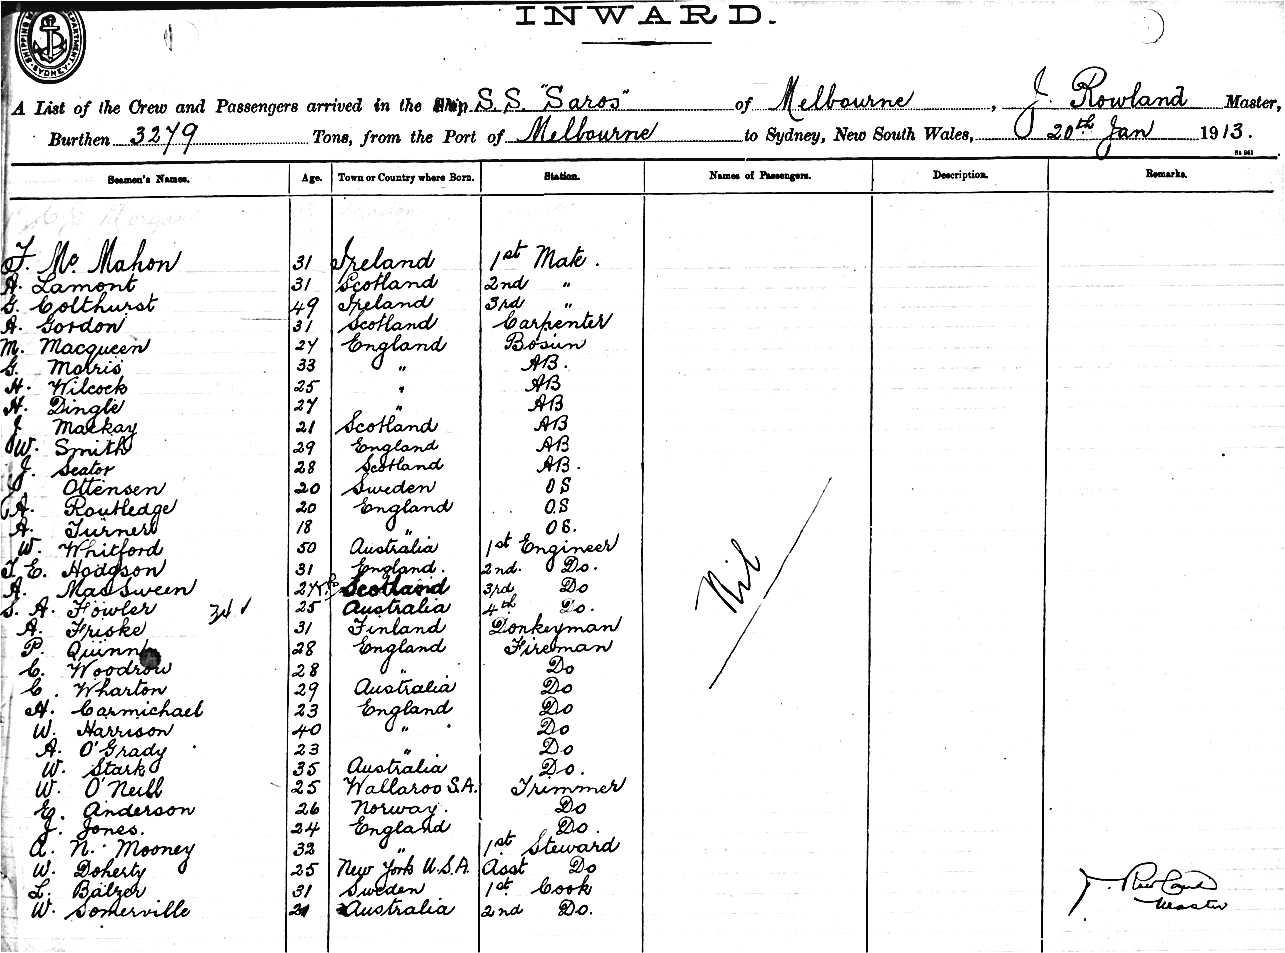 INWARD.
SHIPPING DEPARTMENT SYDNEY
A List of the Crew and Passengers arrived in the Ship S.S. "Saros" of Melbourne, J. Rowland Master,
Burthen 3279 Tons, from the Port of Melbourne to Sydney, New South Wales, 20th Jan 1913.
Seamen's Names. Age. Town or Country where Born. Station. Names of Passengers. Description. Remarks.
F. Mc Mahon 31 Ireland 1st Mate.
A. Lamont 31 Scotland 2nd "
G. Colthurst 49 Ireland 3rd "
A. Gordon 31 Scotland Carpenter
M. Macqueen 27 England Bosun
G. Morris 33 " AB.
H. Wilcock 25 " AB
H. Dingle 27 " AB
J. Mackay 21 Scotland AB
W. Smith 29 England AB
J. Seator 28 Scotland AB.
J. Ottensen 20 Sweden OS
A. Routledge 20 England O.S
A. Turner 18 " OS.
W. Whitford 50 Australia 1st Engineer
T. E. Hodgson 31 England. 2nd. Do.
A. MacSween 27 Scotland 3rd Do
S. A. Fowler 3rd 25 Australia 4th Do.
A. Friske 31 Finland Donkeyman
P. Quinn 28 England Fireman
C. Woodrow 28 " Do
C. Wharton 29 Australia Do
H. Carmichael 23 England Do
W. Harrison 40 " Do
A. O'Grady 23 " Do
W. Stark 35 Australia Do.
W. O'Neill 25 Wallaroo S.A. Trimmer
E. Anderson 26 Norway. Do
J. Jones. 24 England Do.
A. N. Mooney 32 " 1st Steward
W. Doherty 25 New York U.S.A. Asst Do
L. Balzer 31 Sweden 1st Cook
W. Somerville 21 Australia 2nd Do.
Nil
J. Rowland
Master